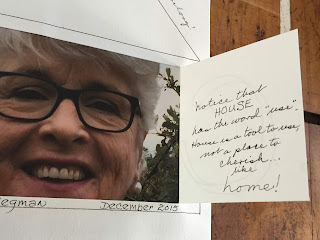 notice that
HOUSE
has the word "use".
House is a tool to use,
not a place to
cherish...
like
home!
egman
December 2015